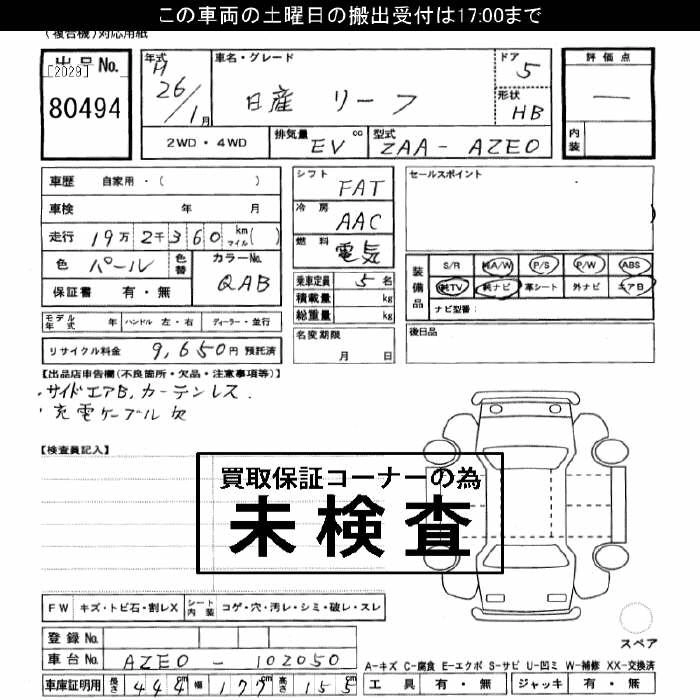 この車両の土曜日の搬出受付は17:00まで
(複合機)対応用紙
出品No.
[2029]
80494
年式 H 26/1月
車名・グレード
日産 リーフ
ドア 5
形状 HB
2WD・4WD
排気量 cc EV
型式 ZAA-AZE0
評価点
―
内装
車歴 自家用・( )
車検 年 月
走行 19万2千360 km マイル( )
色 パール 色替
カラーNo. QAB
保証書 有・無
モデル年式 年 ハンドル 左・右 ディーラー・並行
リサイクル料金 9,650円 預託済
シフト FAT
冷房 AAC
燃料 電気
乗車定員 5名
積載量 kg
総重量 kg
名変期限
月 日
セールスポイント
装備品
S/R 純A/W P/S P/W ABS
純TV 純ナビ 革シート 外ナビ エアB
ナビ型番:
後日品
【出品店車告欄(不良箇所・欠品・注意事項等)】
サイドエアB, カーテンレス.
充電ケーブル欠
【検査員記入】
買取保証コーナーの為
未検査
FW キズ・トビ石・割レX シート内装 コゲ・穴・汚レ・シミ・破レ・スレ
登録No.
車台No. AZE0-102050
車庫証明用 長さ 444cm 幅 177cm 高さ 155cm
スペア
A-キズ C-腐食 E-エクボ S-サビ U-凹ミ W-補修 XX-交換済
工具 有・無 ジャッキ 有・無